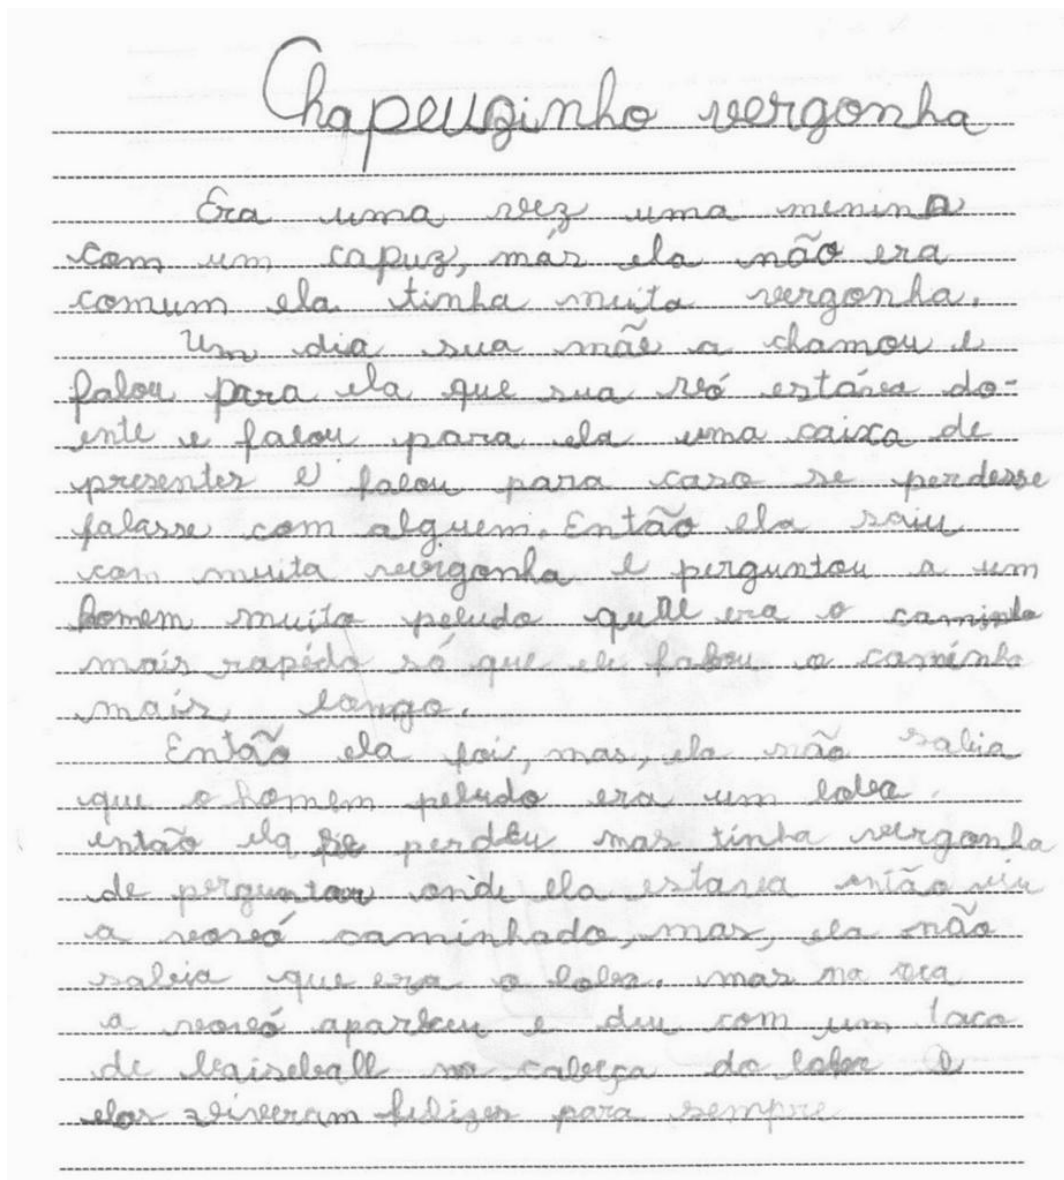 Chapeuzinho vergonha
Era uma vez uma menina
com um capuz, más ela não era
comum ela tinha muita vergonha.
Um dia sua mãe a chamou e
falou para ela que sua vó estáva do-
ente e falou para ela uma caixa de
presentes e falou para caso se perdesse
falasse com alguem. Então ela saiu
com muita vergonha e perguntou a um
homem muito peludo qual era o caminho
mais rapído só que ele falou o caminho
mais longo.
Então ela foi, mas, ela não sabia
que o homem peludo era um lobo.
então ela se perdeu mas tinha vergonha
de perguntar onde ela estava então viu
a vovó caminhado, mas, ela não
sabia que era o lobo. mas na ora
a vovó apareceu e deu com um taco
de baiseball na cabeça do lobo e
elas viveram felizes para sempre